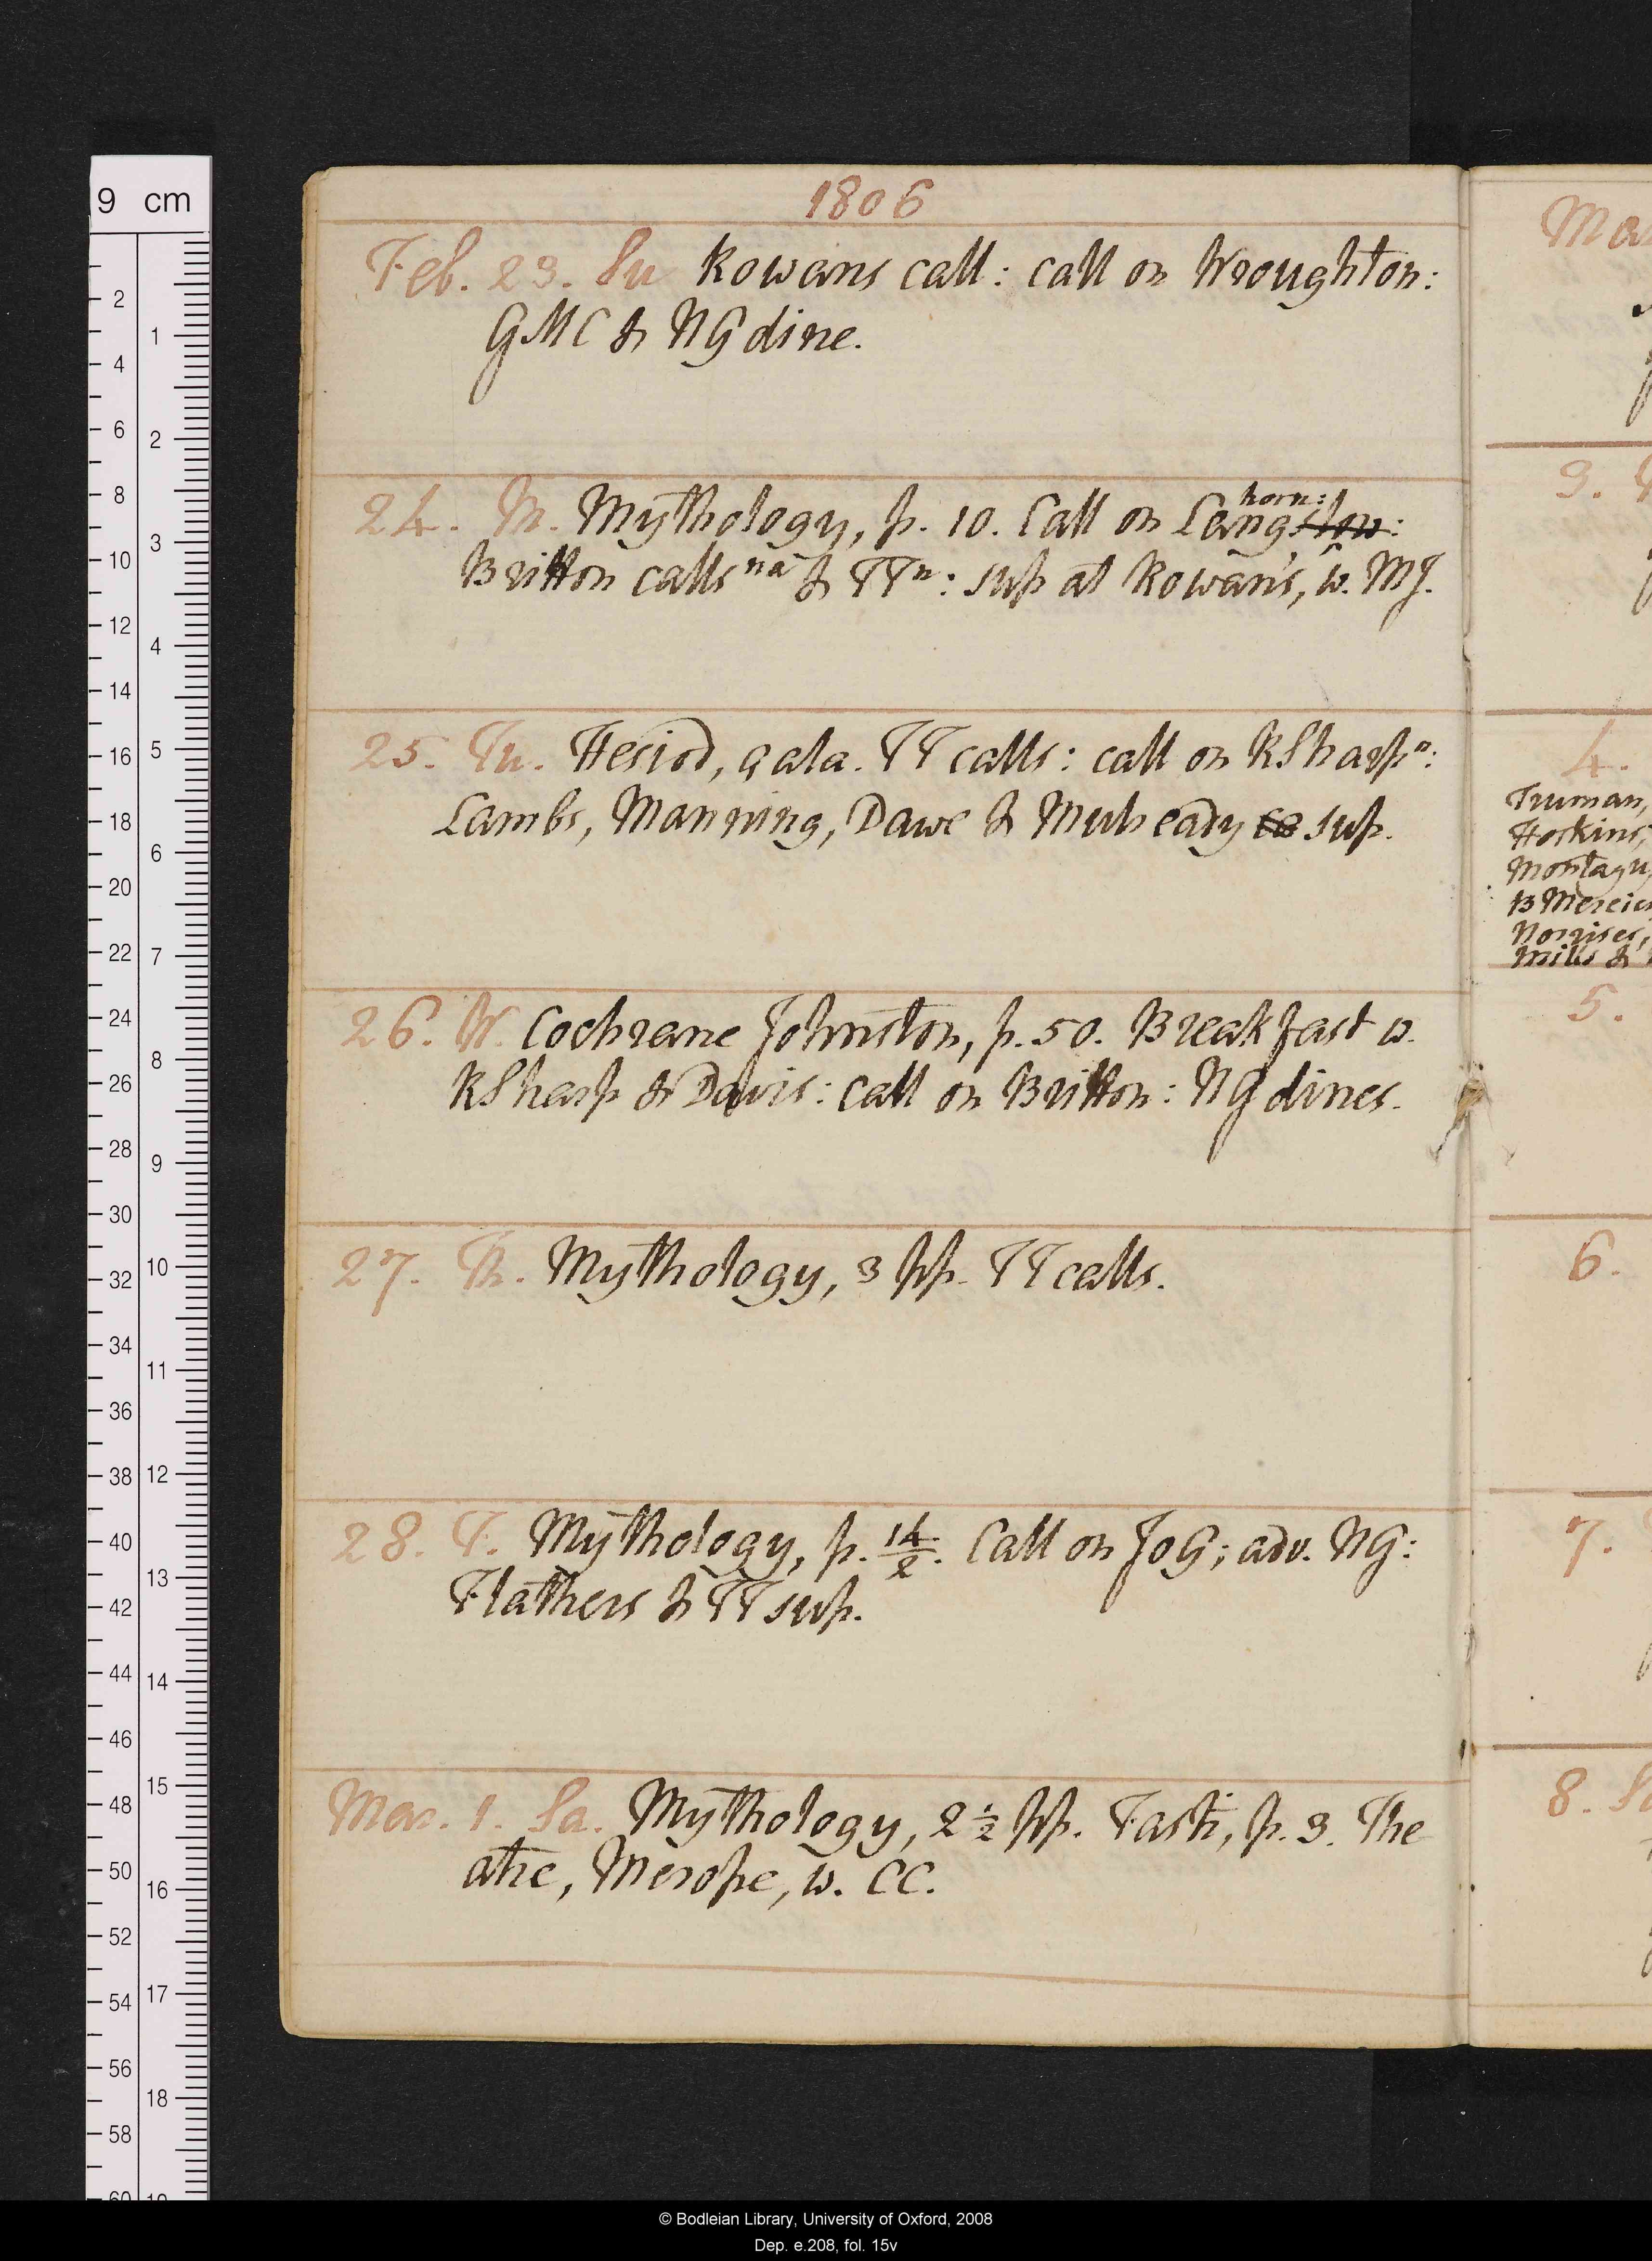 1806
Feb. 23. Su Rowans call: call on Wroughton:
GMC & NG dine.
24. M. Mythology, p. 10. Call on Langston: horn:
Britton calls na & TT n: sup at Rowan's, w. MJ.
25. Tu. Hesiod, qala. TT calls: call on RSharp n:
Lambs, Manning, Dawe & Mulready sup.
26. W. Cochrane Johnston, p. 50. Breakfast w.
RSharp & Davis: call on Britton: NG dines.
27. Th. Mythology, 3 pp. TT calls.
28. F. Mythology, p. 14/2. Call on JoG; adv. NG:
Flathers & TT sup.
Mar. 1. Sa. Mythology, 2 1/2 pp. Fasti, p. 3. The
atre, Merope, w. CC.
3.
4.
Truman,
Hoskins,
Montagu,
Norrises,
Mills &
5.
6.
7.
8.
9 cm
2
4
6
8
10
12
14
16
18
20
22
24
26
28
30
32
34
36
38
40
42
44
46
48
50
52
54
56
58
60
1
2
3
4
5
6
7
8
9
10
11
12
13
14
15
16
17
18
© Bodleian Library, University of Oxford, 2008
Dep. e.208, fol. 15v